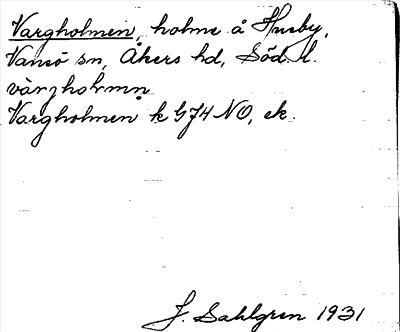 Vargholmen, holme å Husby,
Vansö sn, Åkers hd, Söd. l.
vàrjholmn̥
Vargholmen k G74 NO, ek.
J. Sahlgren 1931